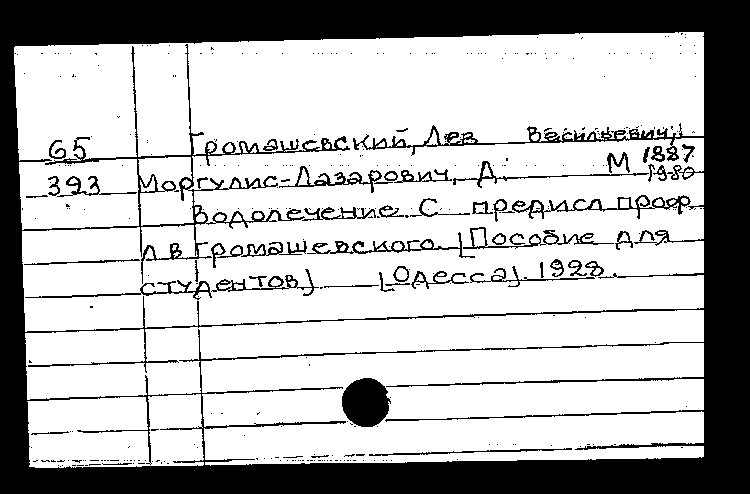 65 Громашевский, Лев Васильевич,
393 Моргулис-Лазарович, Д. М 1887
1980
Водолечение С предисл проф
Л В Громашевского. [Пособие для
студентов] [Одесса]. 1928.